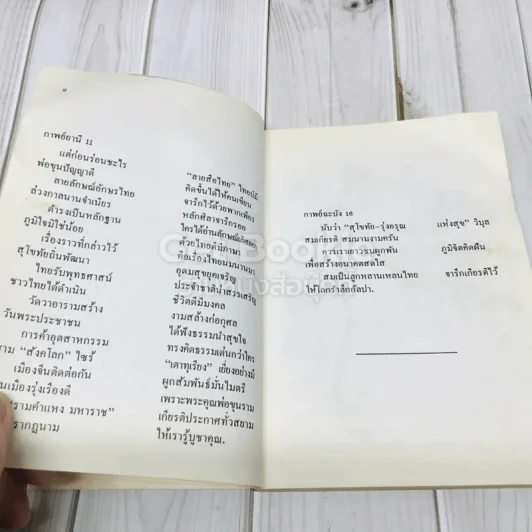 ๘
กาพย์ยานี 11
แต่ก่อนร่อนชะไร “ลายสือไทย” ไทยบ่มี
พ่อขุนปัญญาดี คิดขึ้นได้ให้คนเขียน
ลายลักษณ์อักษรไทย จารึกไว้ด้วยพากเพียร
ล่วงกาลนานจำเนียร หลักศิลาจารึกรอย
ดำรงเป็นหลักฐาน ใครได้อ่าน
ภูมิใจมิใช่น้อย ด้วยไทยดีมีภาษา
เรื่องราวที่กล่าวไว้ คือเรื่องไทย
สุโขทัยถิ่นพัฒนา อุดมสุขยุคเจริญ
ไทยรับพุทธศาสน์ ประจำชาติน่าสรรเสริญ
ชาวไทยได้ดำเนิน ชีวิตดีมีมงคล
วัดวาอารามสร้าง งามสล้างก่อกุศล
วันพระประชาชน ได้ฟังธรรมนำสุขใจ
การค้าอุตสาหกรรม ทรงคิดธรรมเด่นกว่าใคร
นาม “สังคโลก” ไซร้ “เตาทุเรียง” เยี่ยงอย่างมี
เมืองจีนติดต่อกัน ผูกสัมพันธ์มั่นไมตรี
เมืองรุ่งเรืองดี เพราะพระคุณพ่อขุนราม
“รามคำแหง มหาราช” เกียรติประกาศทั่วสยาม
รากฏนาม ให้เรารู้บูชาคุณ.
กาพย์ฉะบัง 16
นับว่า “สุโขทัย-รุ่งอรุณ แห่งสุข” วิบุล
สมเกียรติ สมนามงามครัน
ควรเราเยาวชนผูกพัน ภูมิจิตคิดฝัน
เพื่อสร้างอนาคตสดใส
สมเป็นลูกหลานเหลนไทย จารึกเกียรติไว้
ให้โลกรำลึกกัลปา.